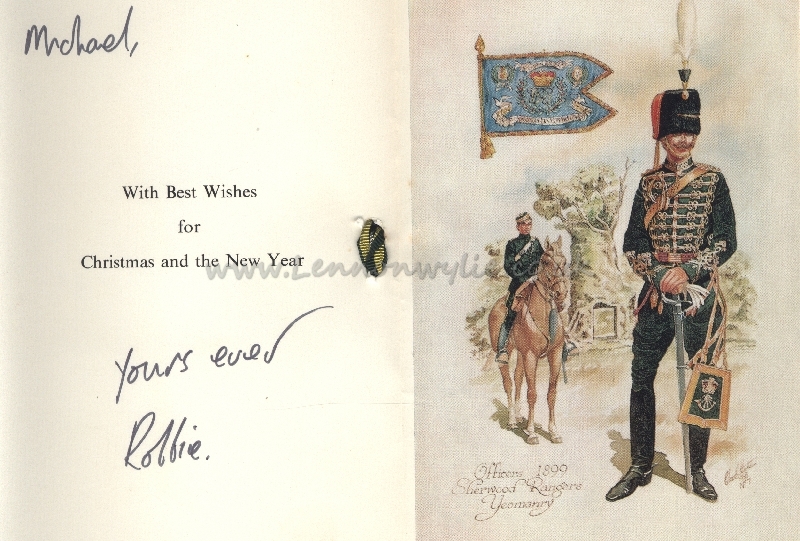 Michael,
With Best Wishes
for
Christmas and the New Year
Yours ever
Robbie.
Officers 1899
Sherwood Rangers
Yeomanry